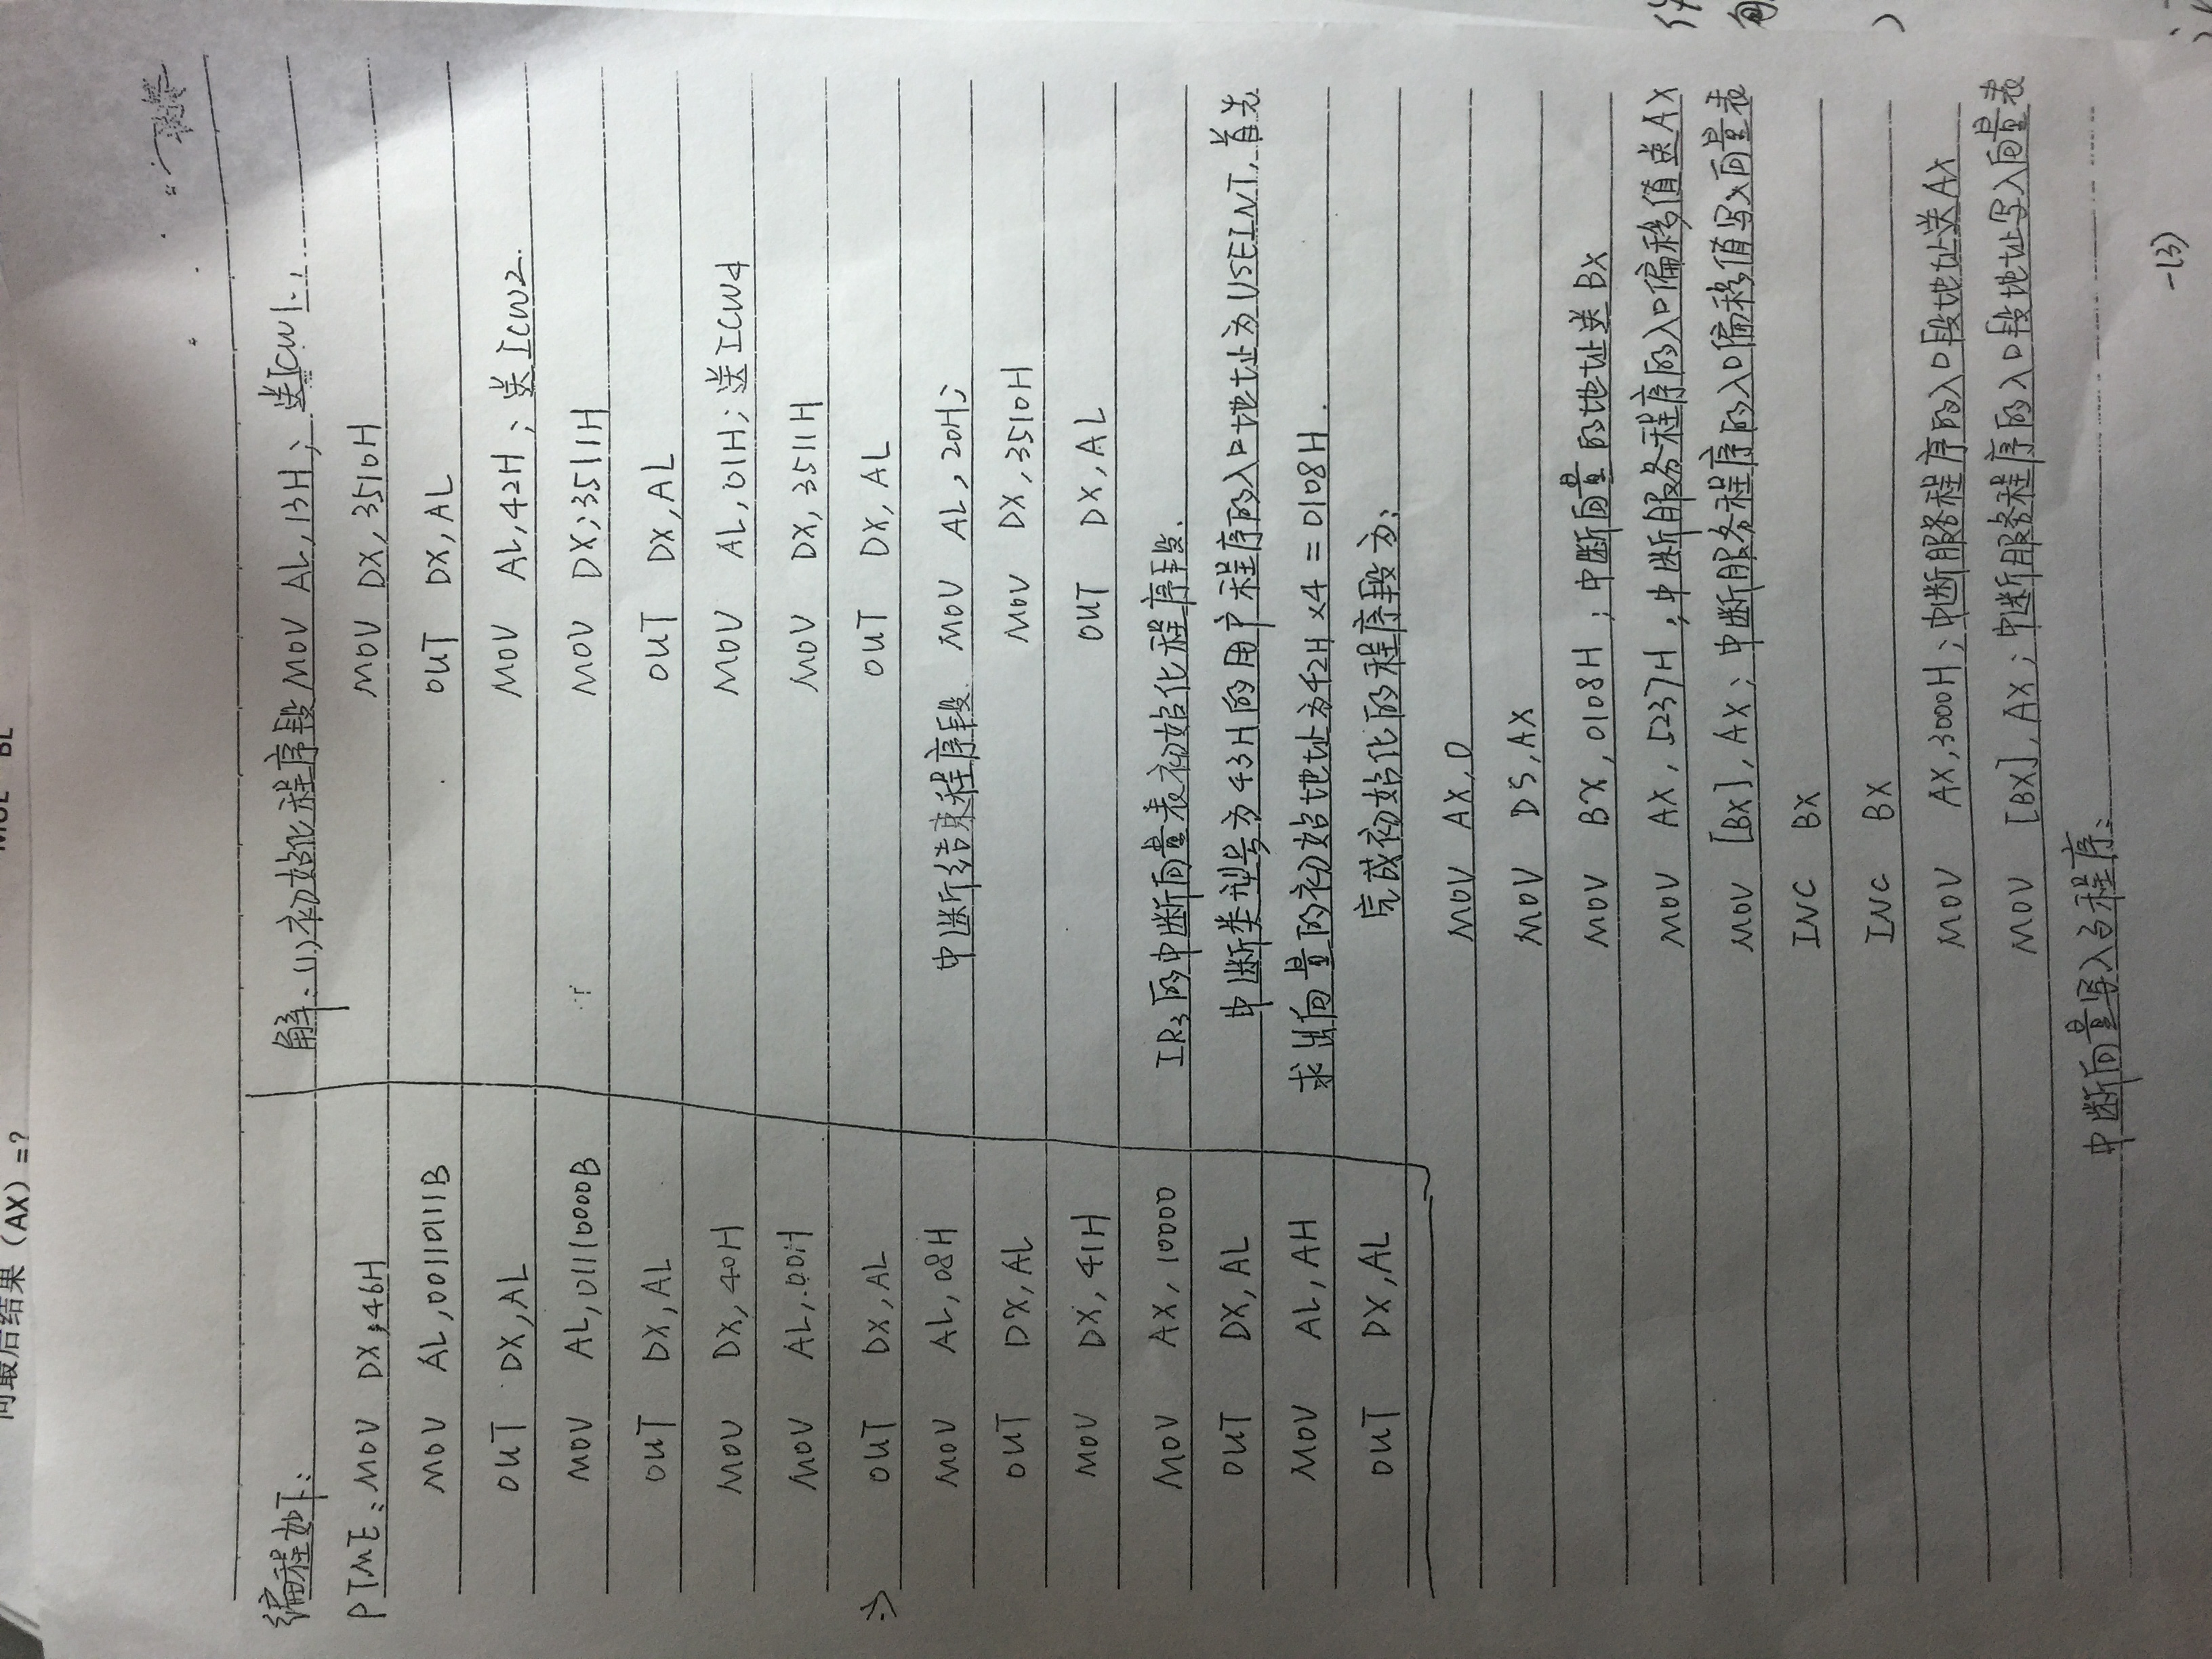 问最后结果（AX）=?
MUL BL
编程如下：
PTME：MOV DX,46H
MOV AL,00110111B
OUT DX,AL
MOV AL,01110000B
OUT DX,AL
MOV DX,40H
MOV AL,00H
OUT DX,AL
MOV AL,08H
OUT DX,AL
MOV DX,41H
MOV AX,10000
OUT DX,AL
MOV AL,AH
OUT DX,AL
解：(1)初始化程序段MOV AL,13H；送ICW1.
MOV DX,3510H
OUT DX,AL
MOV AL,42H；送ICW2.
MOV DX;3511H
OUT DX,AL
MOV AL,01H；送ICW4
MOV DX,3511H
OUT DX,AL
中断结束程序段 MOV AL,20H;
MOV DX,3510H
OUT DX,AL
IR3的中断向量表初始化程序段.
中断类型号为43H的用户程序的入口地址为USEINT,首先
求出向量的初始地址为42H×4=0108H.
完成初始化的程序段为；
MOV AX,0
MOV DS,AX
MOV BX,0108H；中断向量的地址送BX
MOV AX,5237H；中断服务程序的入口偏移值送AX
MOV [BX],AX；中断服务程序的入口偏移值写入向量表
INC BX
INC BX
MOV AX,3000H；中断服务程序的入口段地址送AX
MOV [BX],AX；中断服务程序的入口段地址写入向量表
中断向量写入子程序：
-(3)